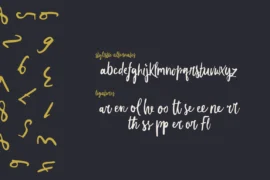 stylistic alternates
abcdefghijklmnopqrstuvwxyz
ligatures
ar en ol he oo tt se ee ne rr
th ss pp er or fl